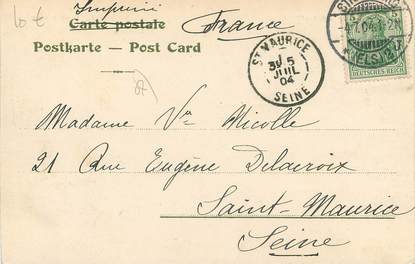 10 €
Imprimé
Carte postale
France
Postkarte — Post Card
ST MAURICE
5
JUIL
04
SEINE
DEUTSCHES REICH
Madame Vve Nicolle
21 Rue Eugène Delacroix
Saint-Maurice
Seine